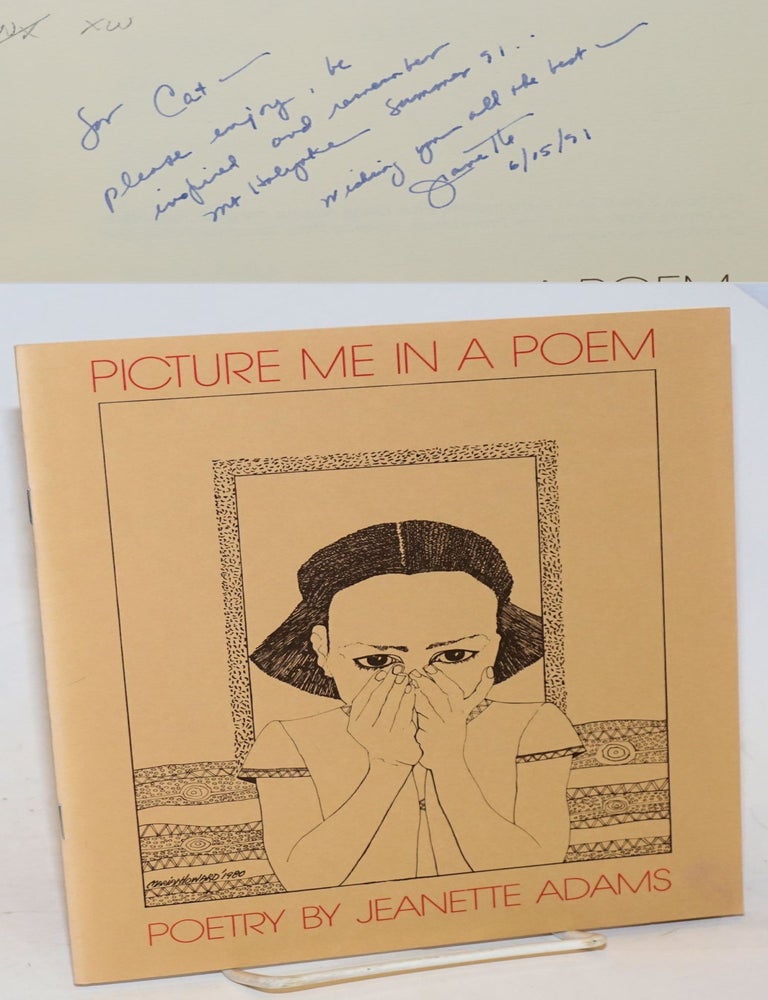 XW
for Cat —
please enjoy, be
inspired and remember
Mt Holyoke Summer 91...
Wishing you all the best —
Jeanette
6/15/91
A POEM
PICTURE ME IN A POEM
HOWARD '1980
POETRY BY JEANETTE ADAMS